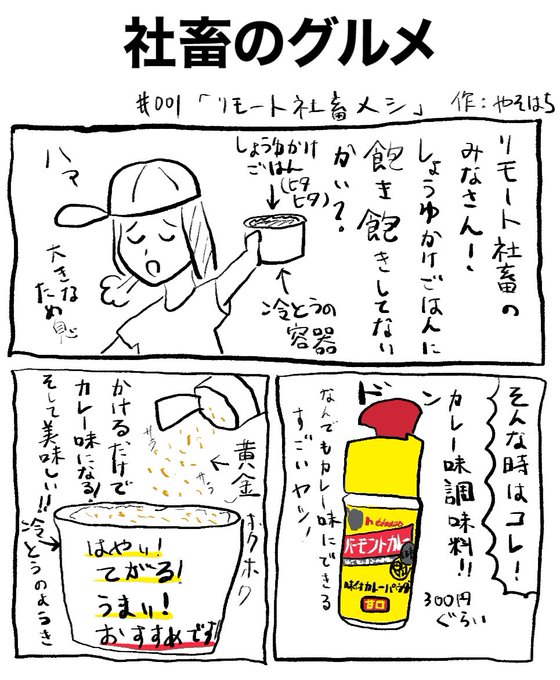 社畜のグルメ
#001「リモート社畜メシ」 作:やそはち
リモート社畜の
みなさん！
しょうゆかけごはんに
飽き飽きしてない
かい？
しょうゆかけ
ごはん
(ヒタ
ヒタ)
冷とうの
容器
ハァ
大きな
ため息
そんな時はコレ！
カレー味調味料!!
300円
ぐらい
ドン
なんでもカレー味にできる
すごいヤツ！
バーモントカレー
味付カレーパウダー
甘口
サラ
サラ
黄金
ホクホク
かけるだけで
カレー味になる！
そして美味しい!!
冷とうのようき
はやい！
てがる！
うまい！
おすすめです！